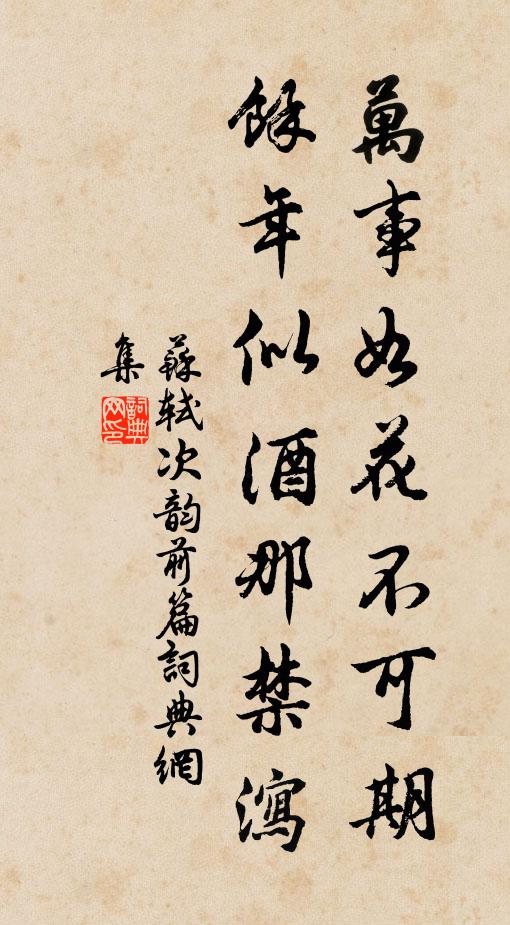 萬事如花不可期
餘年似酒那禁瀉
蘇軾次韵前篇詞典網
集
詞典
网印